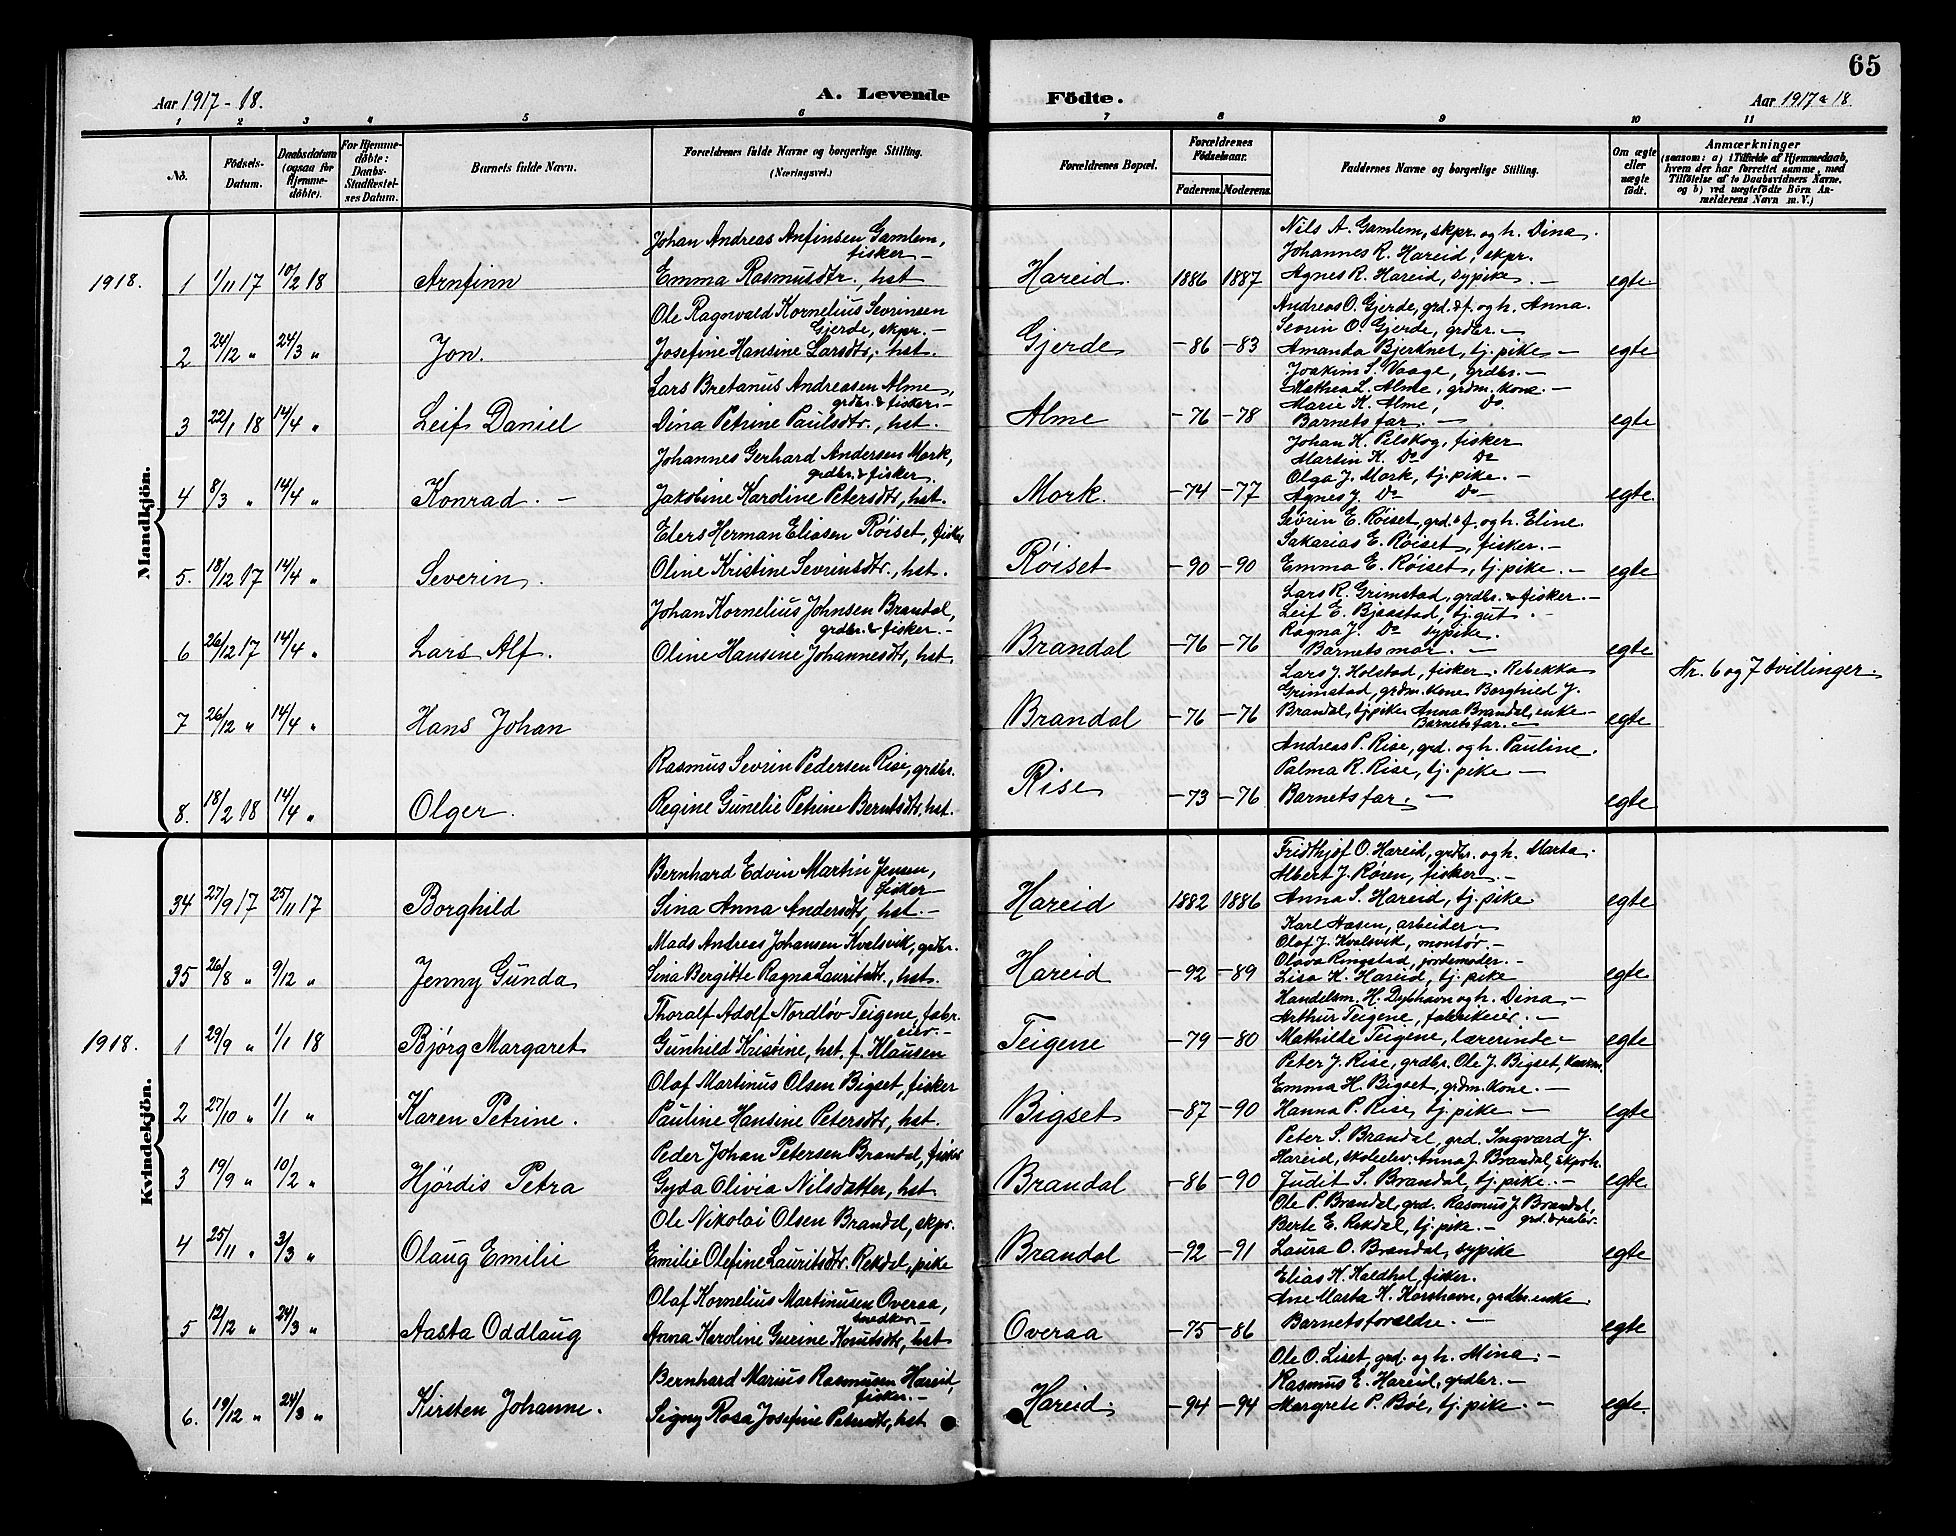 65
Aar 1917-18. A. Levende Födte. Aar 1917 & 18.
1 2 3 4 5 6 7 8 9 10 11
No. Födsels-Datum. Daabsdatum (ogsaa for Hjemme-döbte). For Hjemme-döbte: Daabs-Stadfæstel-ses Datum. Barnets fulde Navn. Forældrenes fulde Navne og borgerlige Stilling. (Næringsvei.) Forældrenes Bopæl. Forældrenes Födselsaar. Faderens. Moderens. Faddernes Navne og borgerlige Stilling. Om ægte eller uægte födt. Anmærkninger (saasom: a) i Tilfælde af Hjemmedaab, hvem der har forrettet samme, med Tilföielse af to Daabsvidners Navne, og b) ved uægtefödte Börn An-melderens Navn m. V.)
Mandkjön.
Johan Andreas Anfinsen Gamlem, fisker - Nils A. Gamlem, skpr. og h. Dina.
Johannes R. Hareid, skpr.
1918. 1 1/11 17 10/2 18 Arnfinn Emma Rasmusdtr., hst Hareid. 1886 1887 Agnes R. Hareid, sypike. - egte
Ole Ragnvald Kornelius Sevrinsen Gjerde, skpr. - Andreas O. Gjerde, grd. & f. og h. Anna.
Sevrin O. Gjerde, grdbr. -
2 24/12 " 24/3 " Jon. Josefine Hansine Larsdtr., hst. Gjerde -86 -83 Amanda Bjerknes, tj. pike - egte
Lars Bretanus Andreasen Alme, grdbr. & fisker - Joakim S. Vaage, grdbr. -
Mathea L. Alme, grdm. kone. -
Marie K. Alme, Do.
3 22/1 18 14/4 " Leif Daniel Dina Petrine Paulsdtr., hst. Alme -76 -78 Barnets far. - egte
Johannes Gerhard Andersen Mork, grdbr. & fisker. Johan K. Pilskog, fisker
Martin K. Do Do
Olga J. Mork, tj. pike. -
4 8/3 " 14/4 " Konrad. - Jakobine Karoline Petersdtr, hst. Mork. -74 -77 Agnes J. Do Do - egte.
Elers Herman Eliasen Röiset, fisker Sevrin E. Röiset, grd. & f. og h. Eline
Sakarias E. Röiset, fisker. -
5. 18/12 17 14/4 " Severin. Oline Kristine Sevrinsdtr., hst. Röiset -90 -90 Emma E. Röiset, tj. pike. - egte
Johan Kornelius Johnsen Brandal, grdbr. & fisker - Lars R. Grimstad, grdbr. & fisker. -
Leif E. Bjaastad, tj. gut. -
Ragna J. Do sypike.
6 26/12 17 14/4 " Lars Alf. Oline Hansine Johannesdtr, hst. Brandal -76 -76 Barnets mor. - egte
Lars J. Holstad, fisker. Rebekka Nr. 6 og 7 tvillinger
Grimstad, grdm. kone Borghild J.
7 26/12 " 14/4 " Hans Johan Brandal -76 -76 Brandal, tj. pike. Anna Brandal, enke - Barnets far. - egte
Rasmus Sevrin Pedersen Rise, grdbr. Andreas P. Rise, grd. og h. Pauline.
Palma R. Rise, tj. pike -
8. 18/2 18 14/4 " Olger. Regine Gunelie Petrine Berntsdtr, hst. Rise -73 -76 Barnets far. - egte
Kvindekjön.
Bernhard Edvin Martin Jensen, fisker - Fridthjof O. Hareid, grdbr. og h. Marta.
Albert J. Rösen, fisker. -
34 27/9 17 25/11 17 Borghild Sina Anna Andersdtr, hst. - Hareid 1882 1886 Anna S. Hareid, tj. pike egte
Mads Andreas Johansen Kvalsvik, grdbr. Karl Aasen, arbeider -
Olaf J. Kvalsvik, montör. -
Olava Ringstad, jordemoder. -
35 26/8 " 9/12 " Jenny Gunda Sina Bergitte Ragna Lauritsdtr., hst. Hareid -92 -89 Lisa K. Hareid, tj. pike egte
Thoralf Adolf Nordlöv Teigene, fabr. eier - Handelsm. H. Dybhavn og h. Dina -
Arthur Teigene, fabrikeier. -
1918. 1 29/9 " 1/1 18 Björg Margaret Gunhild Kristine, hst. f. Klausen Teigene -79 -80 Mathilde Teigene, lærerinde - egte
Olaf Martinus Olsen Bigset, fisker Peter J. Rise, grdbr. Ole J. Bigset,
Emma H. Bigset, grdm. kone. -
2 27/10 " 1/1 " Karen Petrine. Pauline Hansine Petersdtr, hst. Bigset -87 -90 Hanna P. Rise, tj. pike - egte
Peder Johan Petersen Brandal, fisker Peter S. Brandal, grd. Ingvard J.
Hareid, skoleelev. Anna J. Brandal,
3 19/9 " 10/2 " Hjördis Petra Gyda Olivia Nilsdatter, hst Brandal -86 -90 Judit S. Brandal, tj. pike. - egte.
Ole Nikolai Olsen Brandal, skpr. Ole P. Brandal, grd. Rasmus J. Brandal,
Berte E. Rekdal, tj. pik. -
4 25/11 " 3/3 " Olaug Emilie Emilie Olefine Lauritsdtr. Rekdal, pike Brandal -92 -91 Laura O. Brandal, sypike egte
Olaf Kornelius Martinusen Overaa, snedker - Elias K. Kaldhol, fisker.
Ane Marta K. Korshavn, grdbr. enke.
5 12/12 " 24/3 " Aasta Oddlaug Anna Karoline Gurine Knutsdtr, hst Overaa -75 -86 Barnets forældre. - egte
Bernhard Marius Rasmussen Hareid, fisker. - Ole O. Liset, grd. og h. Mina. -
Rasmus E. Hareid, grdbr. -
6. 19/12 " 24/3 " Kirsten Johanne. Signy Rosa Josefine Petersdtr, hst Hareid. -94 -94 Margrete P. Böe, tj. pike. - egte.